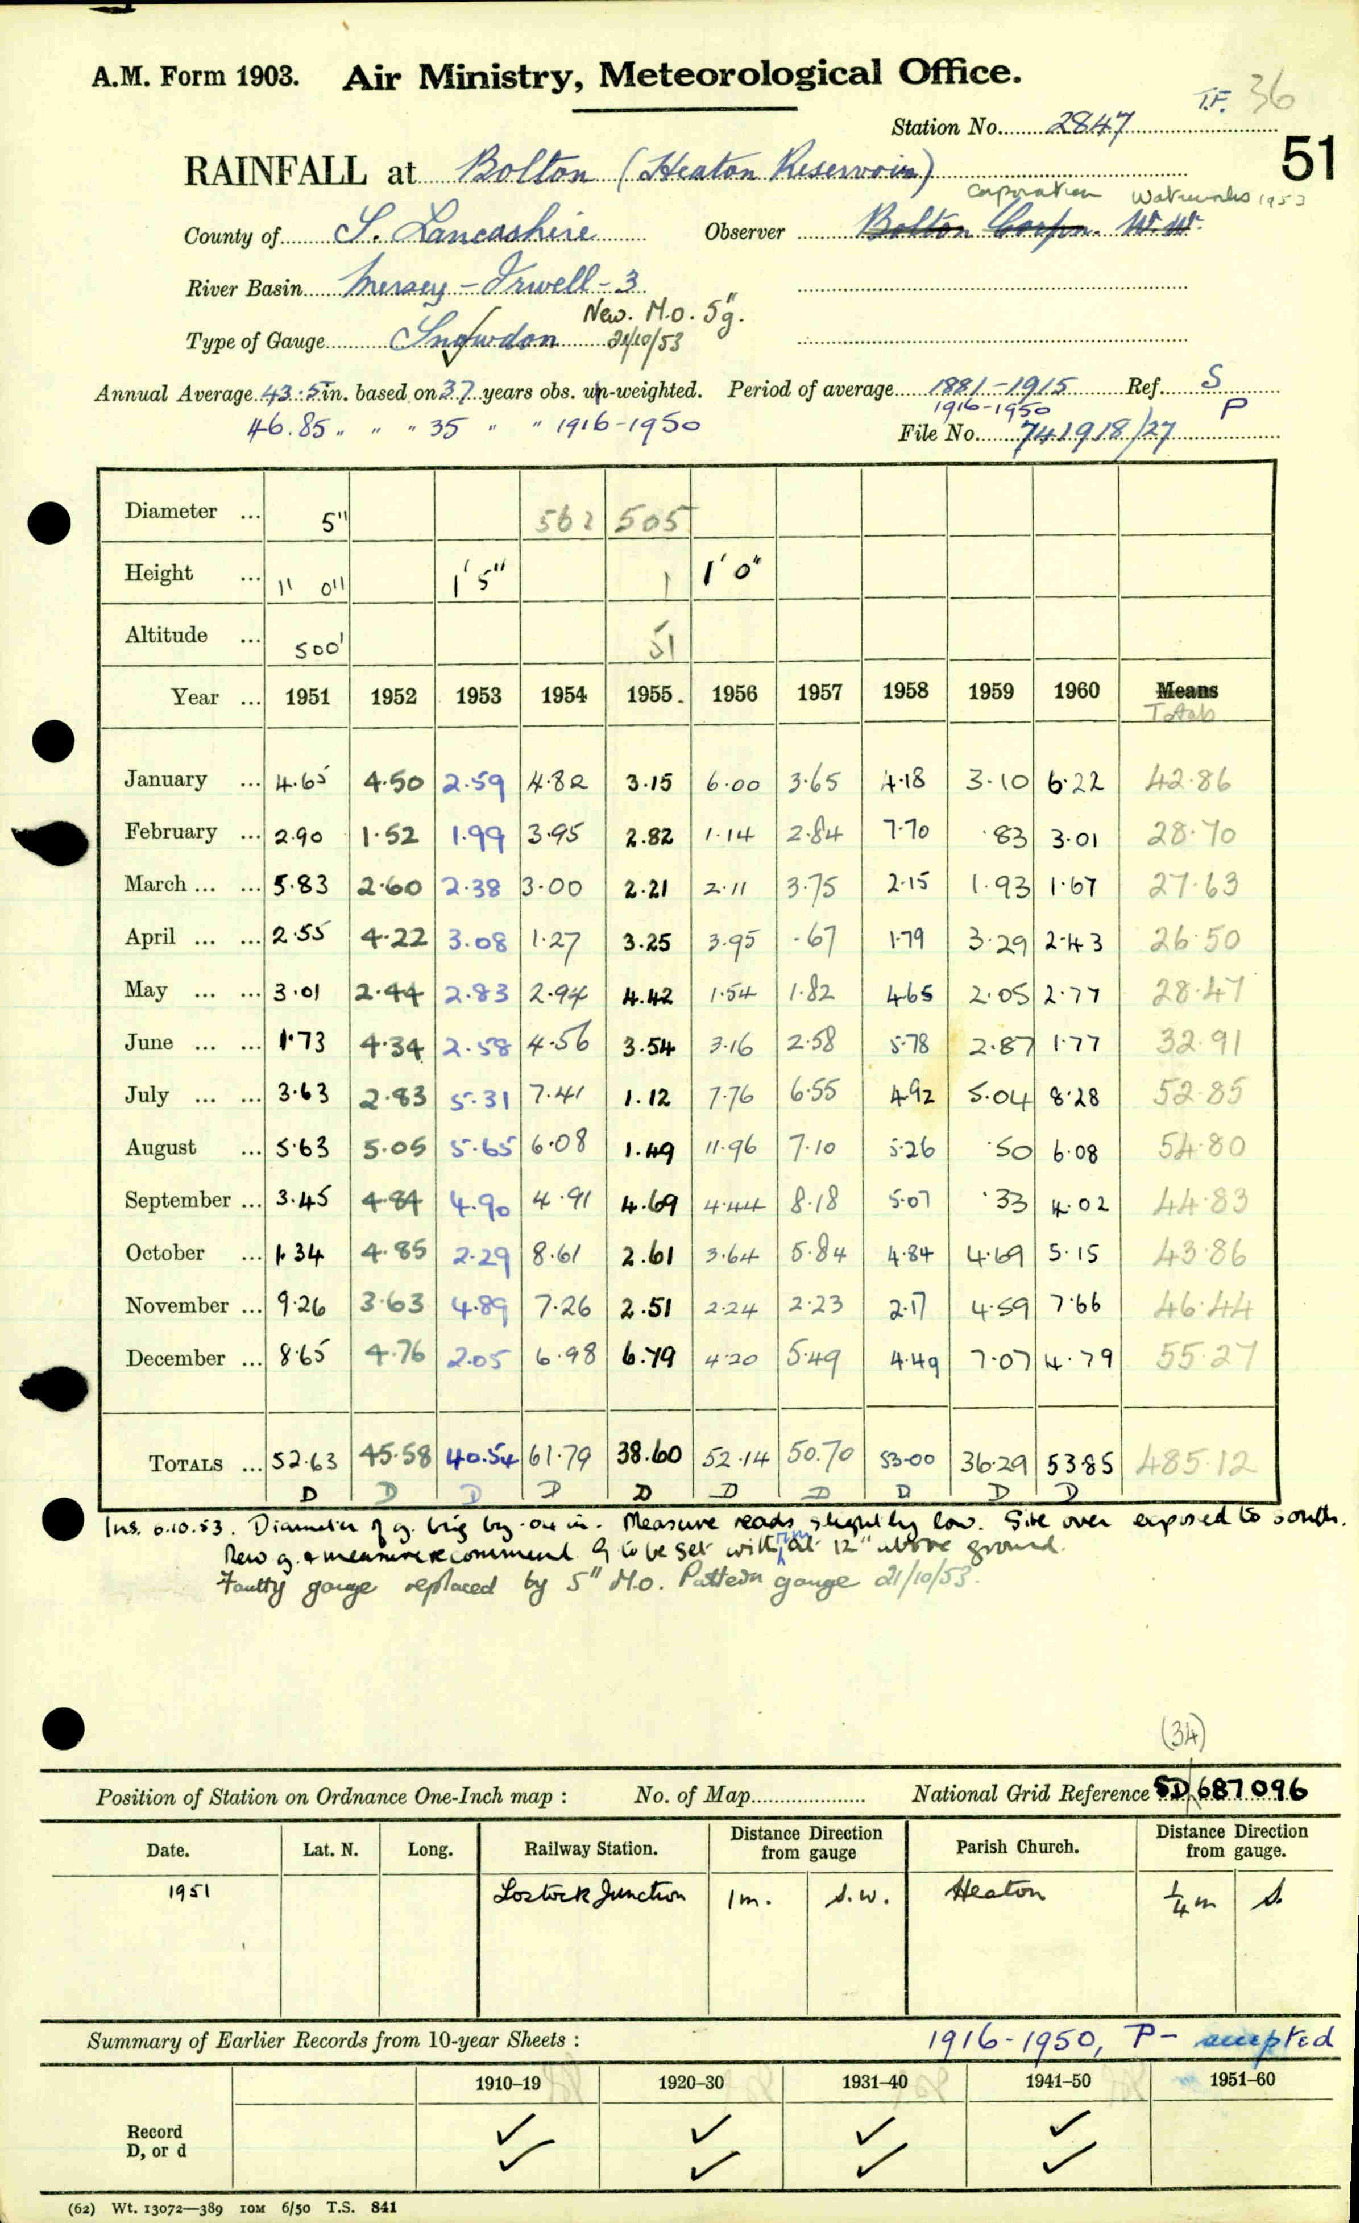 A.M. Form 1903. Air Ministry, Meteorological Office.
T.F. 36
Station No. 2847
51
RAINFALL at Bolton (Heaton Reservoir)
Corporation Waterworks 1953
County of S. Lancashire Observer Bolton Corpn. W.W.
River Basin Mersey - Irwell - 3
New. M.O. 5" g.
Type of Gauge Snowdon 21/10/53
Annual Average 43.5 in. based on 37 years obs. un-weighted. Period of average 1881-1915 Ref. S
1916-1950 P
46.85 " " " 35 " " 1916-1950
File No. 741918/27
Diameter ... 5" 562 505
Height ... 1' 0" 1' 5" 1 1' 0"
Altitude ... 500' 51
Year ... 1951 1952 1953 1954 1955 . 1956 1957 1958 1959 1960 Means
Totals
January ... 4.65 4.50 2.59 4.82 3.15 6.00 3.65 4.18 3.10 6.22 42.86
February ... 2.90 1.52 1.99 3.95 2.82 1.14 2.84 7.70 .83 3.01 28.70
March ... ... 5.83 2.60 2.38 3.00 2.21 2.11 3.75 2.15 1.93 1.67 27.63
April ... ... 2.55 4.22 3.08 1.27 3.25 3.95 .67 1.79 3.29 2.43 26.50
May ... ... 3.01 2.44 2.83 2.94 4.42 1.54 1.82 4.65 2.05 2.77 28.47
June ... ... 1.73 4.34 2.58 4.56 3.54 3.16 2.58 5.78 2.87 1.77 32.91
July ... ... 3.63 2.83 5.31 7.41 1.12 7.76 6.55 4.92 5.04 8.28 52.85
August ... 5.63 5.05 5.65 6.08 1.49 11.96 7.10 5.26 .50 6.08 54.80
September ... 3.45 4.84 4.90 4.91 4.69 4.44 8.18 5.07 .33 4.02 44.83
October ... 1.34 4.85 2.29 8.61 2.61 3.64 5.84 4.84 4.69 5.15 43.86
November ... 9.26 3.63 4.89 7.26 2.51 2.24 2.23 2.17 4.59 7.66 46.44
December ... 8.65 4.76 2.05 6.98 6.79 4.20 5.49 4.49 7.07 4.79 55.27
TOTALS ... 52.63 45.58 40.54 61.79 38.60 52.14 50.70 53.00 36.29 53.85 485.12
D D D D D D D D D D
Ins. 6.10.53. Diameter of g. big by .04 in. Measure reads slightly low. Site over exposed to south.
New g. + measure recommend g to be set with rim at 12" above ground.
Faulty gauge replaced by 5" M.O. Pattern gauge 21/10/53.
(34)
Position of Station on Ordnance One-Inch map : No. of Map National Grid Reference SD 687096
Date. Lat. N. Long. Railway Station. Distance from gauge Direction Parish Church. Distance from gauge. Direction
1951 Lostock Junction 1 m. S.W. Heaton 1/4 m S.
Summary of Earlier Records from 10-year Sheets : 1916-1950, P - accepted
1910–19 1920–30 1931–40 1941–50 1951–60
Record ✓ ✓ ✓ ✓
D, or d ✓ ✓ ✓ ✓
(62) Wt. 13072—389 10M 6/50 T.S. 841